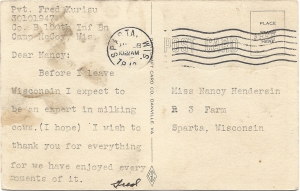 Pvt. Fred Kurisu
30101947
Co. 100th Inf Bn
Camp McCoy, Wis.
Dear Nancy:
Before I leave
Wisconsin I expect to
be an expert in milking
cows.(I hope) I wish to
thank you for everything
for we have enjoyed every
moments of it.
Fred
SPARTA, WIS.
PLACE
Miss Nancy Hendersin
R 3 Farm
Sparta, Wisconsin